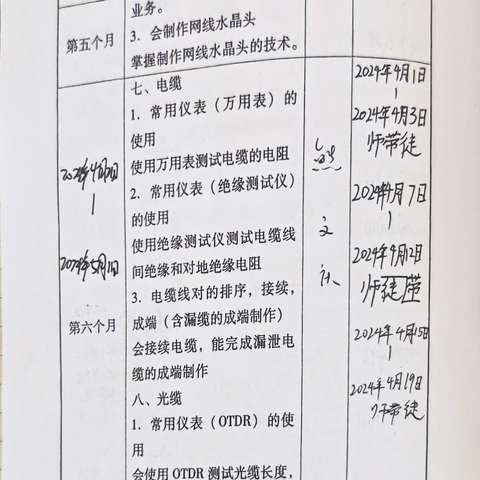 业务。
第五个月
3. 会制作网线水晶头
掌握制作网线水晶头的技术。
七、电缆
1. 常用仪表（万用表）的
使用
使用万用表测试电缆的电阻
2. 常用仪表（绝缘测试仪）
的使用
使用绝缘测试仪测试电缆线
间绝缘和对地绝缘电阻
3. 电缆线对的排序，接续，
第六个月
成端（含漏缆的成端制作）
会接续电缆，能完成漏泄电
缆的成端制作
八、光缆
1. 常用仪表（OTDR）的使
用
会使用 OTDR 测试光缆长度，
2024年5月1日
2024年4月1日
2024年4月3日
师带徒
2024年4月7日
2024年4月12日
师徒带
2024年4月15日
2024年4月19日
师带徒